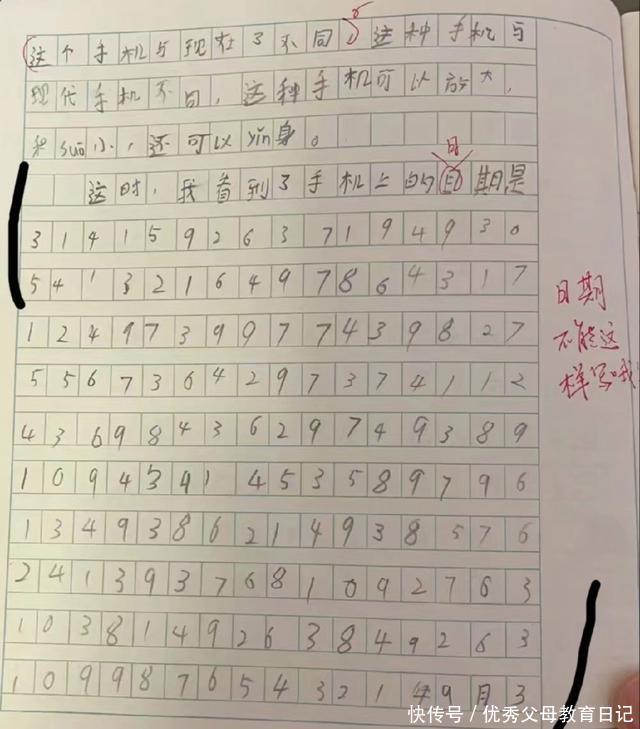 这个手机与现在了不同。这种手机与
现代手机不同，这种手机可以放大，
和suō小，还可以yǐn身。
日
这时，我看到了手机上的日期是
3 1 4 1 5 9 2 6 3 7 1 9 4 9 3 0
5 4 1 3 2 1 6 4 9 7 8 6 4 3 1 7
日期
1 2 4 9 7 3 9 9 7 7 4 3 9 8 2 7
不能这
5 5 6 7 3 6 4 2 9 7 3 7 4 1 1 2
样写哦
4 3 6 9 8 4 3 6 2 9 7 4 9 3 8 9
1 0 9 4 3 9 1 4 5 3 5 8 9 7 9 6
1 3 4 9 3 8 6 2 1 4 9 3 8 5 7 6
2 4 1 3 9 3 7 6 8 1 0 9 2 7 6 3
1 0 3 8 1 4 9 2 6 3 8 4 9 2 6 3
1 0 9 9 8 7 6 5 4 3 2 1 4 9 月 3
快传号／优秀父母教育日记